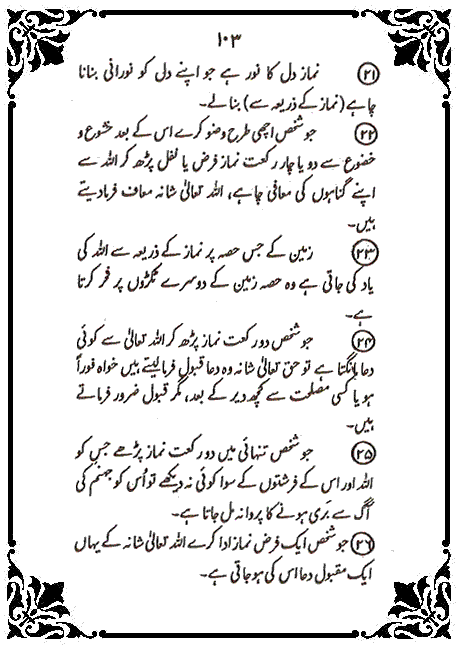 ۱۰۳
(۲۱) نماز دل کا نور ہے جو اپنے دل کو نورانی بنانا
چاہے (نماز کے ذریعہ سے) بنالے۔
(۲۲) جو شخص اچھی طرح وضو کرے اس کے بعد خشوع و
خضوع سے دو یا چار رکعت نماز فرض یا نفل پڑھ کر اللہ سے
اپنے گناہوں کی معافی چاہے، اللہ تعالیٰ شانہ معاف فرمادیتے
ہیں۔
(۲۳) زمین کے جس حصہ پر نماز کے ذریعہ سے اللہ کی
یاد کی جاتی ہے وہ حصہ زمین کے دوسرے ٹکڑوں پر فخر کرتا
ہے۔
(۲۴) جو شخص دو رکعت نماز پڑھ کر اللہ تعالیٰ سے کوئی
دعا مانگتا ہے تو حق تعالیٰ شانہ وہ دعا قبول فرمالیتے ہیں خواہ فوراً
ہو یا کسی مصلحت سے کچھ دیر کے بعد، مگر قبول ضرور فرماتے
ہیں۔
(۲۵) جو شخص تنہائی میں دو رکعت نماز پڑھے جس کو
اللہ اور اس کے فرشتوں کے سوا کوئی نہ دیکھے تو اُس کو جہنم کی
آگ سے بَری ہونے کا پروانہ مل جاتا ہے۔
(۲۶) جو شخص ایک فرض نماز ادا کرے اللہ تعالیٰ شانہ کے یہاں
ایک مقبول دعا اس کی ہوجاتی ہے۔